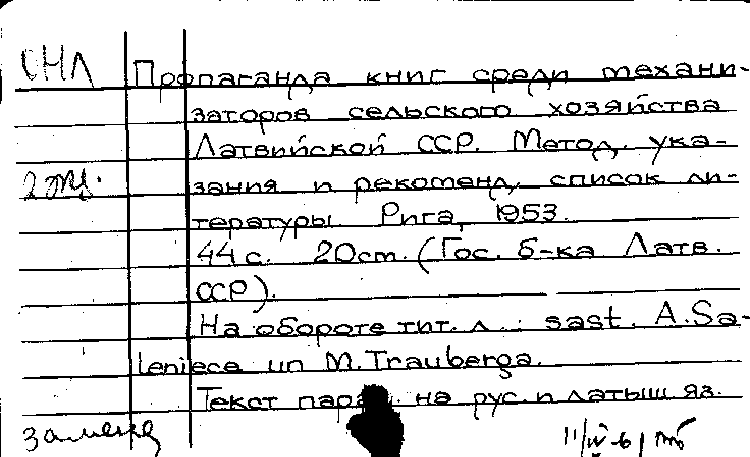 СНЛ
Пропаганда книг среди механи-
заторов сельского хозяйства
Латвийской ССР. Метод. ука-
2 экз.
зания и рекоменд. список ли-
тературы. Рига, 1953.
44 с. 20 см. (Гос. б-ка Латв.
ССР).
На обороте тит. л.: sast. A. Sa-
leniece un M. Trauberga.
Текст парал. на рус. и латыш. яз.
замена
11/IV-61